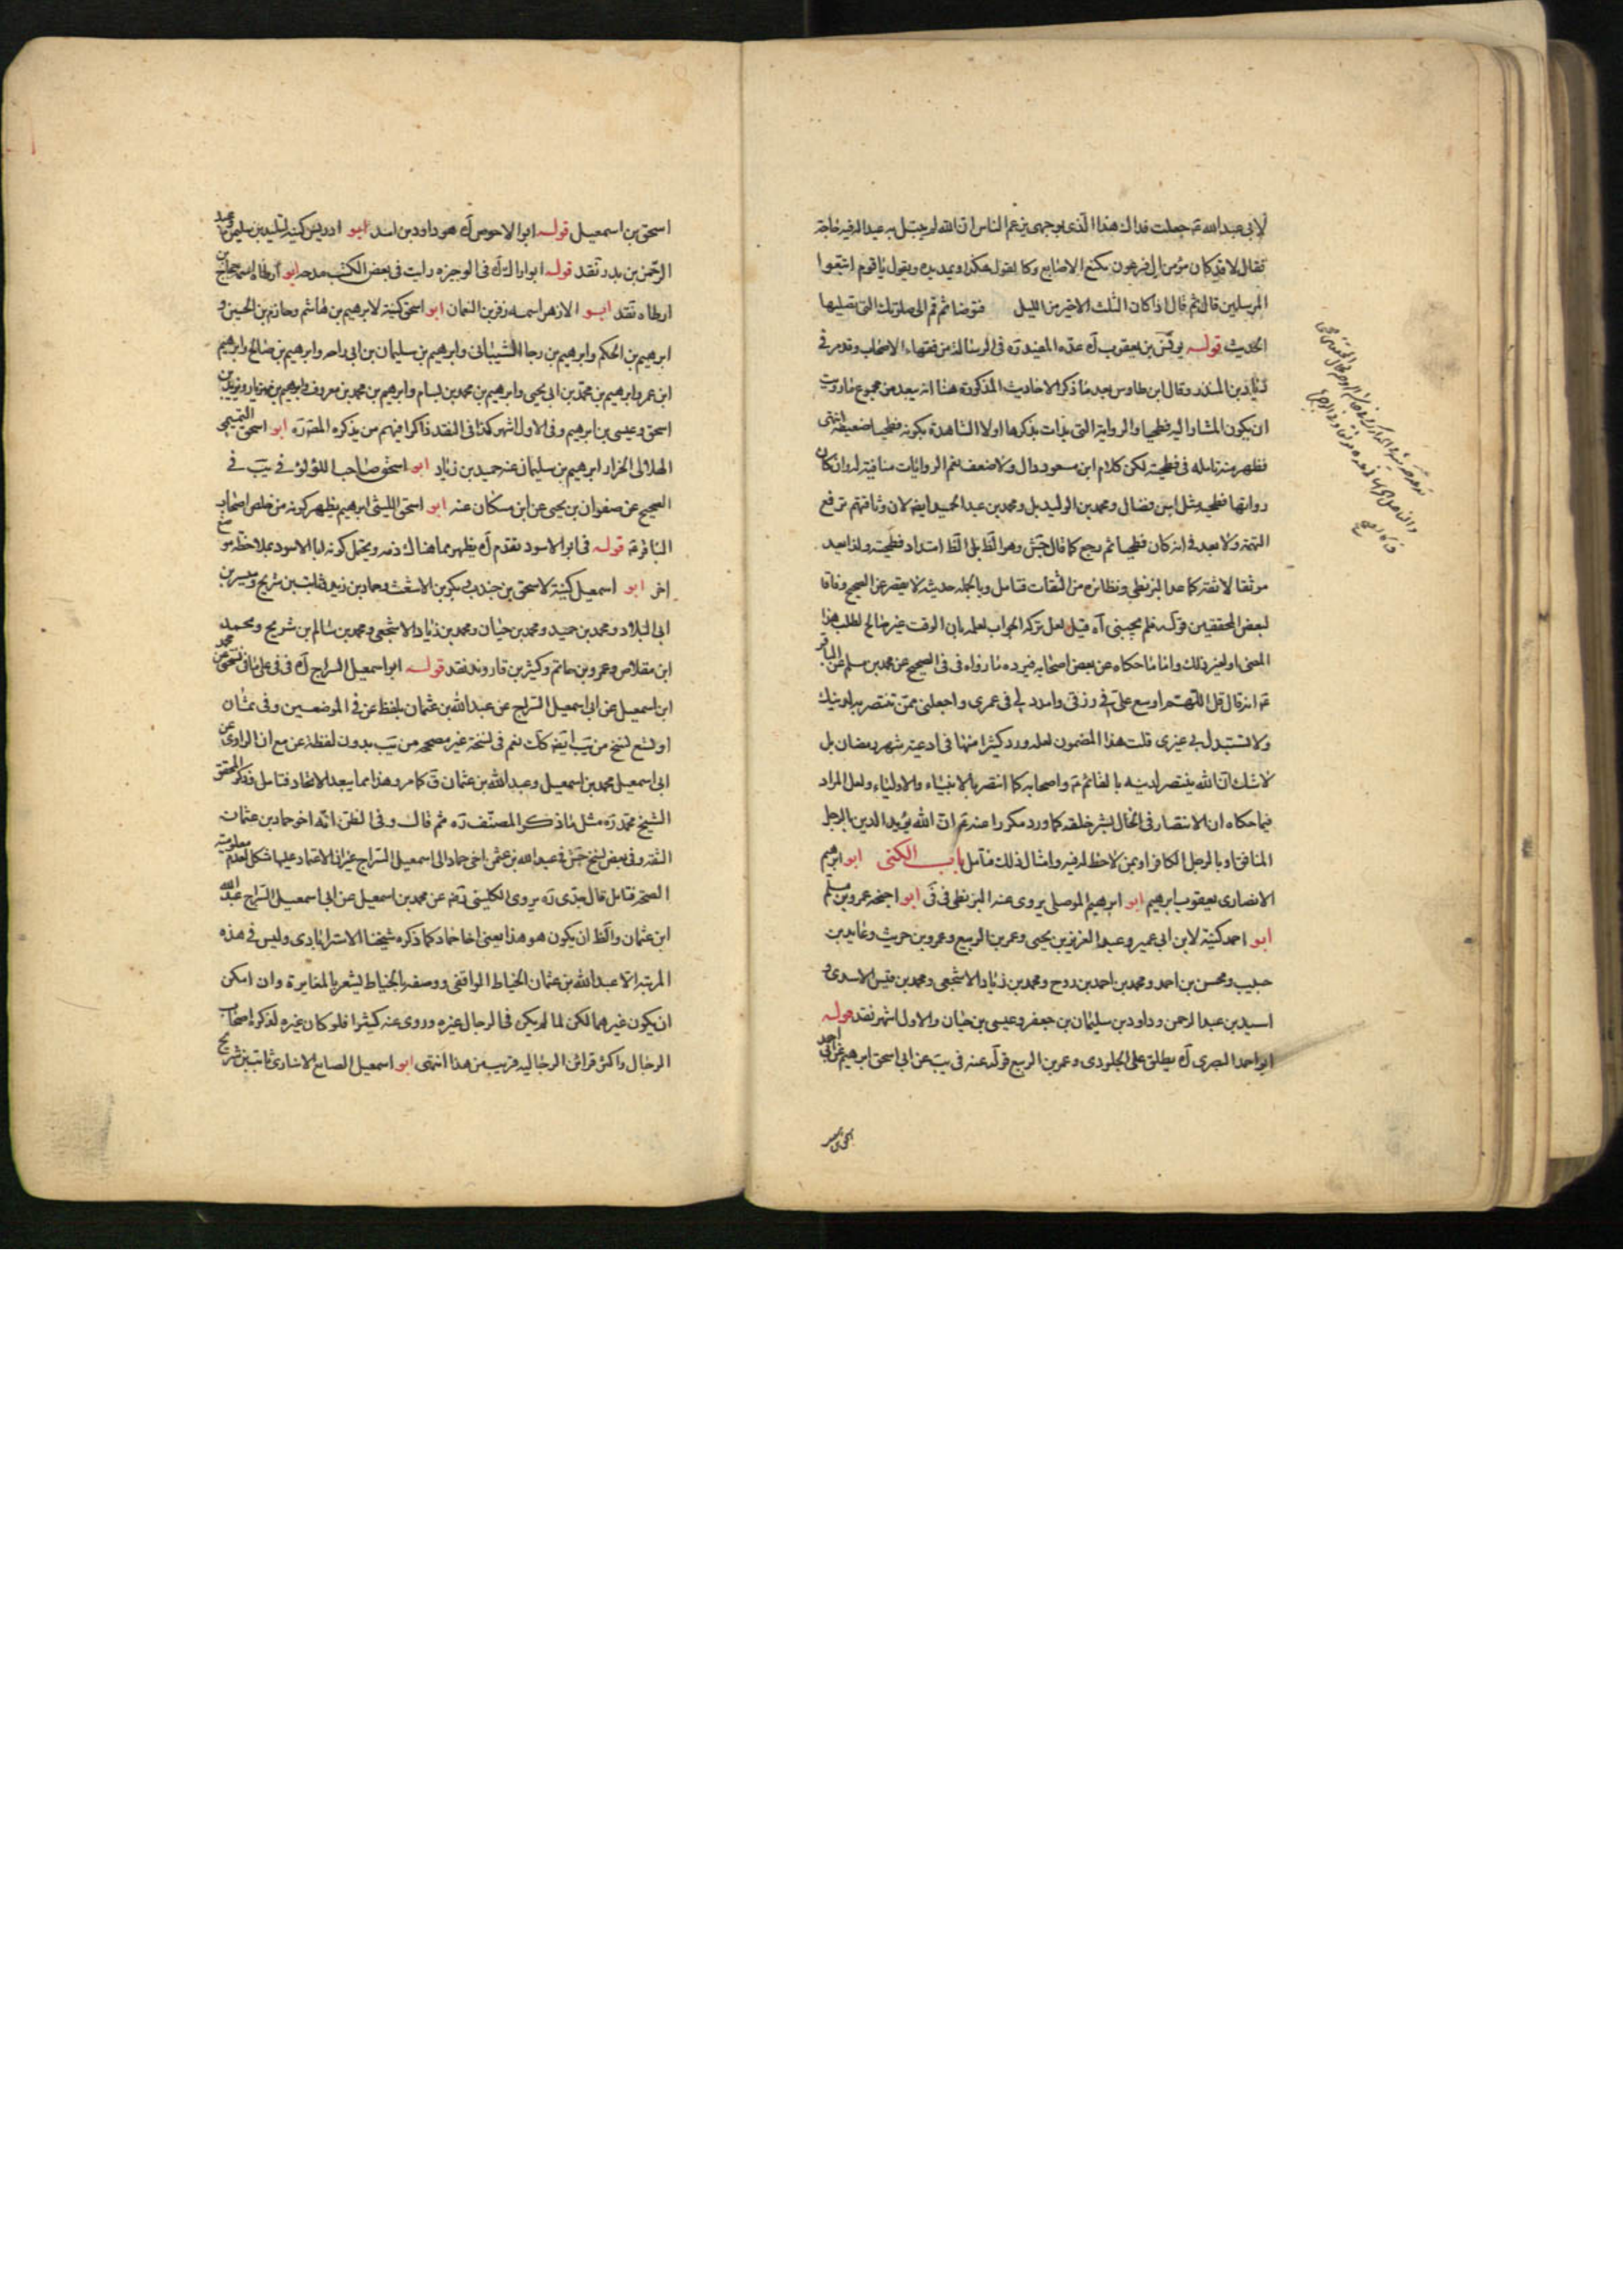 لابي عبد الله ع جعلت فداك هذا الذي بوجهى يزعم الناس ان الله لم يبتل به عبدا له فيه حاجة
فقال لا قد كان مؤمن ال فرعون مكنع الاصابع وكان يقول هكذا ويمد يده ويقول يا قوم اتبعوا
المرسلين قال ثم قال اذا كان الثلث الاخير من الليل فتوضا ثم قم الى صلوتك التى تصليها
الحديث قوله يونس بن يعقوب آه عده المفيد ره في الرسالة من فقهاء الاصحاب ومر في
زياد بن المنذر وقال ابن طاوس بعد ما ذكر الاحاديث المذكورة هنا انه يبعد من مجموع ما رويت
ان يكون المشار اليه فطحيا والرواية التى بدات بذكرها اولا الشاهدة بكونه فطحيا ضعيفة انتهى
فظهر منه تامله في فطحيته لكن كلام ابن مسعود دال ولا ضعف نعم الروايات منافية له وان كان
رواتها فطحية مثل ابن فضال ومحمد بن الوليد بل ومحمد بن عبد الحميد ايضا لان وثاقتهم ترفع
التهمة ولا بعد في انه كان فطحيا ثم رجع كما قال جش وهو الظ بل الظ امتداد فطحيته ولذا يعد
موثقا لا ثقة كما عدا البزنطي ونظائره من الثقات فتامل وبالجملة حديثه لا يقصر عن الصحيح وفاقا
لبعض المحققين قوله فلم يجبنى آه قيل لعل تركه الجواب لعلمه بان الوقت غير صالح لطلب هذا
المعنى او لغير ذلك واما ما حكاه عن بعض اصحابه فيرده ما رواه في في الصحيح عن محمد بن مسلم عن الباقر
ع انه قال قل اللهم اوسع علي في رزقي وامدد لي في عمري واجعلني ممن تنتصر به لدينك
ولا تستبدل بي غيري قلت هذا المضمون لعله ورد كثيرا منها في ادعية شهر رمضان بل
لا شك ان الله ينتصر لدينه بالقائم ع واصحابه كما انتصر بالانبياء والاولياء ولعل المراد
فيما حكاه ان الانتصار في الحال بشر خلقه كما ورد مكررا عنهم ان الله يؤيد الدين بالرجل
المنافق او بالرجل الكافر او بمن لا حظ له فيه وامثال ذلك فتامل باب الكنى ابو ابرهيم
الانصارى يعقوب ابرهيم ابو ابرهيم الموصلى يروى عنه البزنطى في في ابو اجنحه عمرو بن مسلم
ابو احمد كنية لابن ابى عمير وعبد العزيز بن يحيى وعمر بن الربيع وعمرو بن حريث وعايد بن
حبيب ومحسن بن احمد ومحمد بن احمد بن روح ومحمد بن زياد الاشجعى ومحمد بن قيس الاسدى و
اسيد بن عبد الرحمن وداود بن سليمان بن جعفر وعيسى بن حيان والاول اشهر نقد قوله
ابو احمد البصرى آه يطلق على الجلودى وعمر بن الربيع قوله عنه في يب عن ابى اسحق ابرهيم عن ابى احمد
اسحق بن اسمعيل قوله ابو الاحوص آه هو داود بن اسد ابو ادريس كنية لتليد بن سليمن وعبد
الرحمن بن بدر نقد قوله ابو اراك آه في الوجيزه رايت في بعض الكتب مدحه ابو ارطاة اسمه حجاج بن
ارطاه نقد ابو الازهر اسمه زفر بن النعمان ابو اسحق كنية لابرهيم بن هاشم وحازم بن الحسين و
ابرهيم بن الحكم وابرهيم بن رجا الشيبانى وابرهيم بن سليمان بن ابى داحه وابرهيم بن صالح وابرهيم
ابن عمر وابرهيم بن محمد بن ابى يحيى وابرهيم بن محمد بن بسام وابرهيم بن محمد بن معروف وابرهيم بن مهزيار ويزيد بن
اسحق وعيسى بن ابرهيم وفي الاول اشهر كذا في النقد ذاكرا فيهم من يذكره المص ره ابو اسحق التميمى
الهلالى الخزاز ابرهيم بن سليمان عنه حميد بن زياد ابو اسحق صاحب اللؤلؤ في يب في
الصحيح عن صفوان بن يحيى عن ابن مسكان عنه ابو اسحق الليثى ابرهيم يظهر كونه من خلص اصحاب
الباقر ع قوله في ابو الاسود تقدم آه يظهر مما هناك ذمه ويحتمل كونه ابا الاسود بملاحظة موضع
اخر ابو اسمعيل كنية لاسحق بن جندب وبكر بن الاشعث وحماد بن زيد وثابت بن شريح وميسر بن
ابى البلاد ومحمد بن حميد ومحمد بن حيان ومحمد بن زياد الاشجعى ومحمد بن سالم بن شريح ومحمد
ابن مقلاص وعمرو بن حاتم وكثير بن قاروند نقد قوله ابو اسمعيل السراج آه في في على ما في نسختى عن محمد
ابن اسمعيل عن ابى اسمعيل السراج عن عبد الله بن عثمان بلفظ عن في الموضعين وفي ثمان
او تسع نسخ من يب ايضا كك نعم في نسخة غير مصححه من يب بدون لفظة عن مع ان الراوى عن
ابى اسمعيل محمد بن اسمعيل وعبد الله بن عثمان ق كما مر وهذا مما يبعد الاتحاد فتامل فذكر المحقق
الشيخ محمد ره مثل ما ذكر المصنف ره ثم قال وفي الظن انه اخو حماد بن عثمان
الثقه وفي بعض نسخ جش في عبد الله بن عثمن اخى حماد الى اسمعيل السراج غير ان الاعتماد عليها مشكل لعدم معلومية
الصحة فتامل قال جدى ره يروى الكلينى رضه عن محمد بن اسمعيل عن ابى اسمعيل السراج عبد الله
ابن عثمان والظ ان يكون هو هذا يعنى اخا حماد كما ذكره شيخنا الاسترابادى وليس في هذه
المرتبة الا عبد الله بن عثمان الخياط الواقفى ووصفه بالخياط ليشعر بالمغايرة وان امكن
ان يكون غيرهما لكن لما لم يكن في الرجال غيره وروى عنه كثيرا فلو كان غيره لذكره اصحاب
الرجال واكثر قرائن الرجاليه قريب من هذا انتهى ابو اسمعيل الصايغ الانبارى ثابت بن شريح